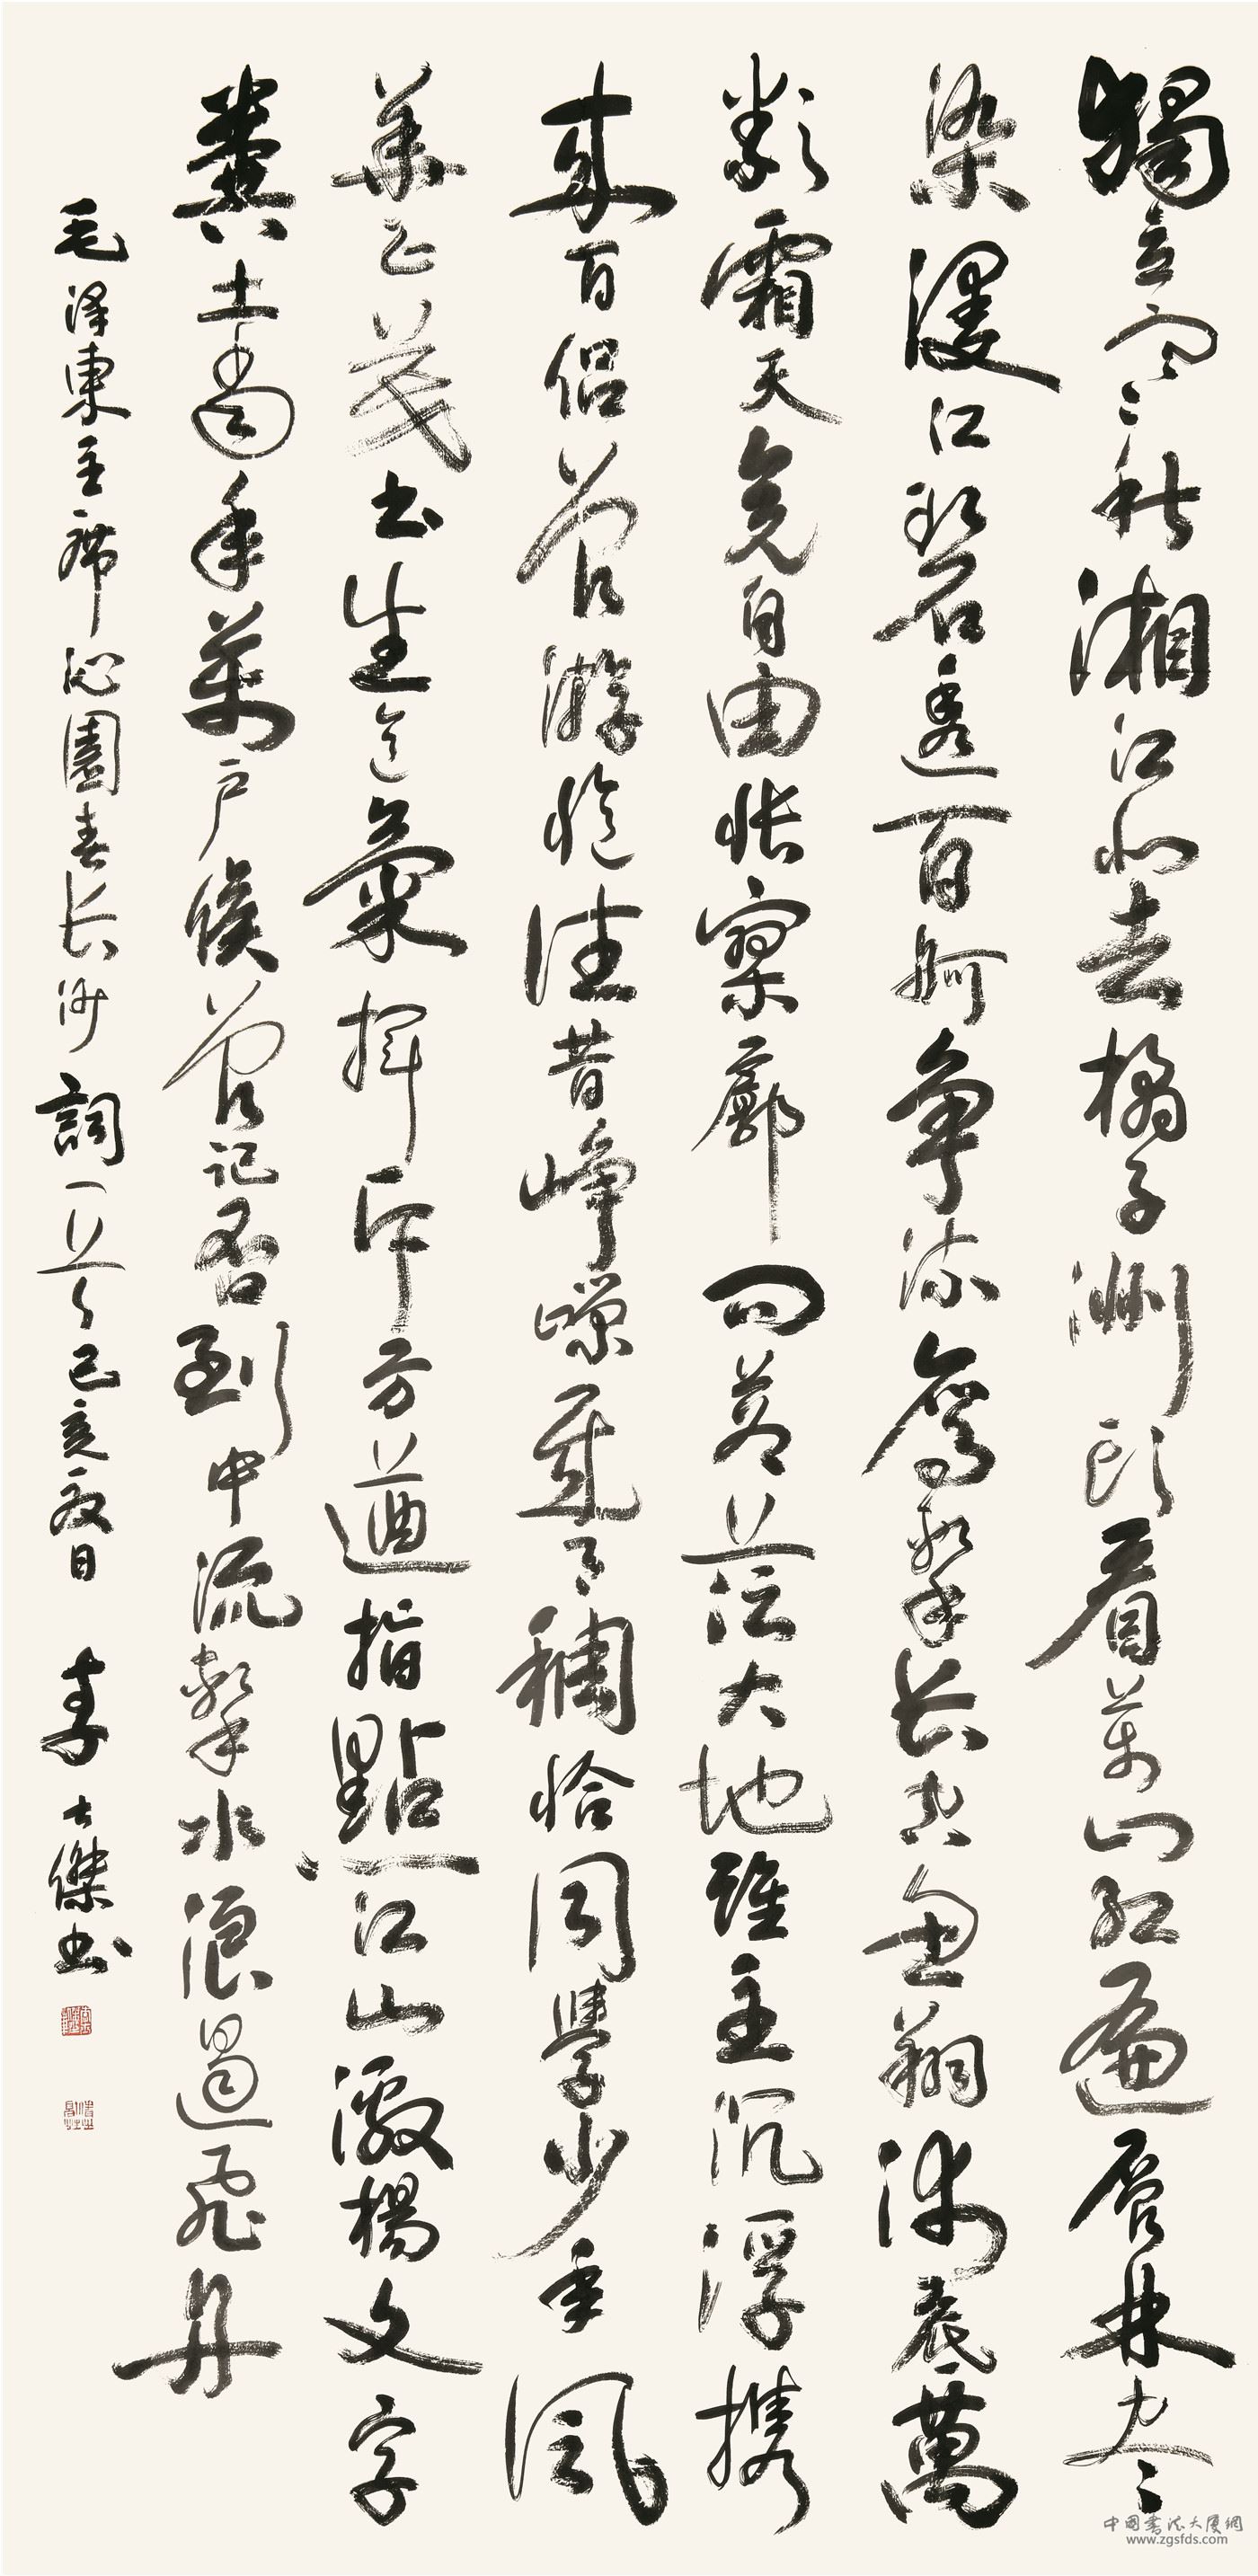 獨立寒秋湘江北去橘子洲頭看萬山紅遍層林盡
染漫江碧透百舸爭流鷹擊長空魚翔淺底萬
類霜天競自由悵寥廓問蒼茫大地誰主沉浮攜
來百侶曾游憶往昔崢嶸歲月稠恰同學少年風
華正茂書生意氣揮斥方遒指點江山激揚文字
糞土當年萬戶侯曾記否到中流擊水浪遏飛舟
毛泽東主席沁園春长沙詞一首己亥夏日 李士傑书
中国書法大廈網
www.zgsfds.com